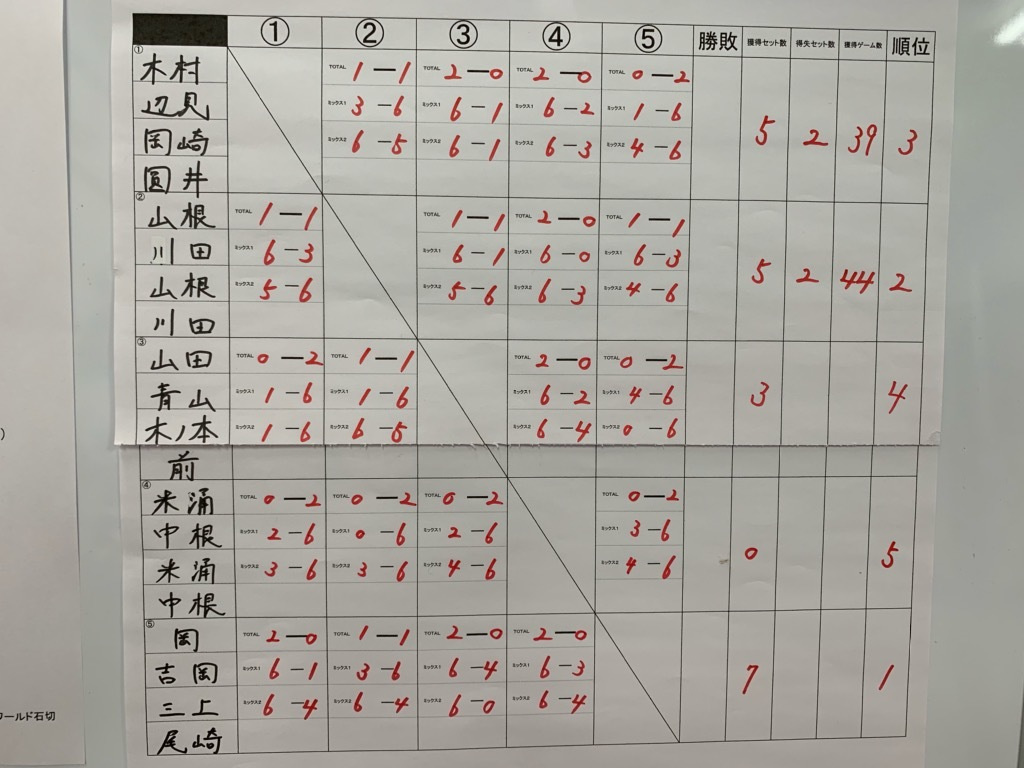 ① ② ③ ④ ⑤ 勝敗 獲得セット数 得失セット数 獲得ゲーム数 順位
①
木村 TOTAL 1-1 TOTAL 2-0 TOTAL 2-0 TOTAL 0-2
辺見 ミックス1 3-6 ミックス1 6-1 ミックス1 6-2 ミックス1 1-6
岡崎 ミックス2 6-5 ミックス2 6-1 ミックス2 6-3 ミックス2 4-6 5 2 39 3
圓井
②
山根 TOTAL 1-1 TOTAL 1-1 TOTAL 2-0 TOTAL 1-1
川田 ミックス1 6-3 ミックス1 6-1 ミックス1 6-0 ミックス1 6-3
山根 ミックス2 5-6 ミックス2 5-6 ミックス2 6-3 ミックス2 4-6 5 2 44 2
川田
③
山田 TOTAL 0-2 TOTAL 1-1 TOTAL 2-0 TOTAL 0-2
青山 ミックス1 1-6 ミックス1 1-6 ミックス1 6-2 ミックス1 4-6 3 4
木ノ本 ミックス2 1-6 ミックス2 6-5 ミックス2 6-4 ミックス2 0-6
)
前
④
米涌 TOTAL 0-2 TOTAL 0-2 TOTAL 0-2 TOTAL 0-2
中根 ミックス1 2-6 ミックス1 0-6 ミックス1 2-6 ミックス1 3-6
米涌 ミックス2 3-6 ミックス2 3-6 ミックス2 4-6 ミックス2 4-6 0 5
中根
⑤
岡 TOTAL 2-0 TOTAL 1-1 TOTAL 2-0 TOTAL 2-0
吉岡 ミックス1 6-1 ミックス1 3-6 ミックス1 6-4 ミックス1 6-3 7 1
三上 ミックス2 6-4 ミックス2 6-4 ミックス2 6-0 ミックス2 6-4
ワールド石切
尾崎